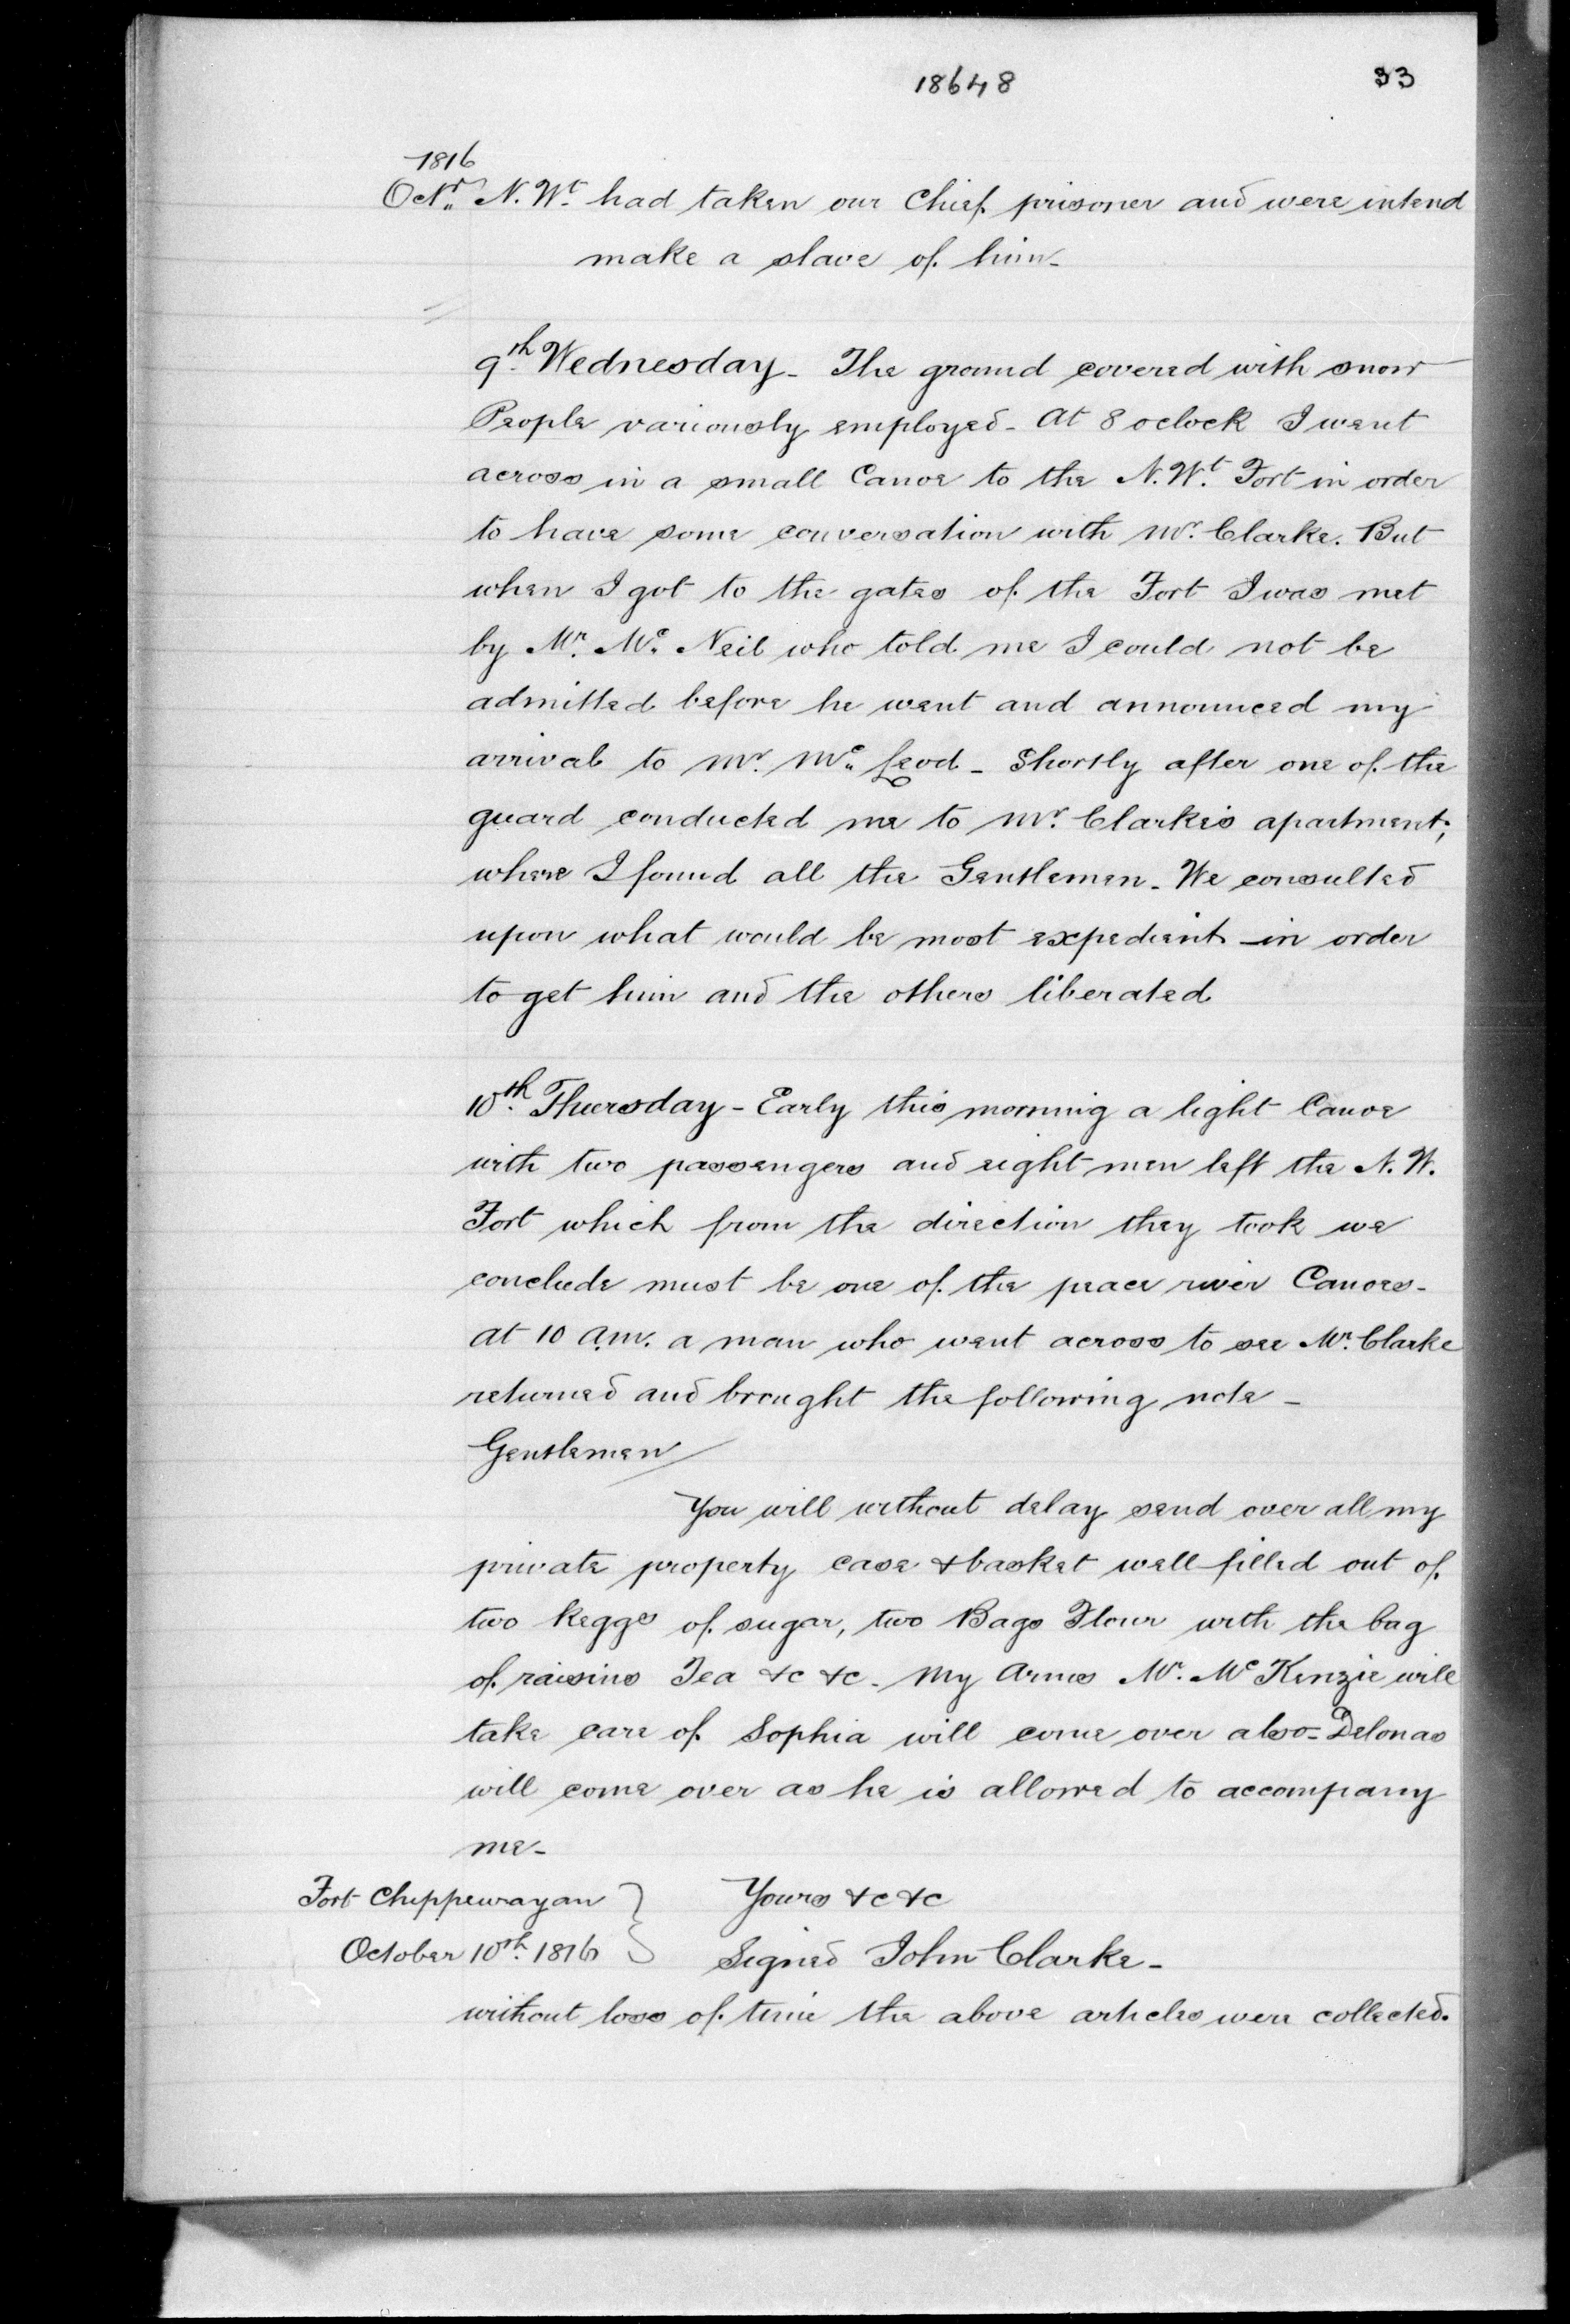 18648 33
1816
Octr. N. Wt. had taken our Chief prisoner and were intend
make a slave of him-
9th. Wednesday - The ground covered with snow
People variously employed - At 8 oclock I went
across in a small Canoe to the N. Wt. Fort in order
to have some conversation with Mr. Clarke. But
when I got to the gates of the Fort I was met
by Mr. Mc. Neil who told me I could not be
admitted before he went and announced my
arrival to Mr. Mc. Leod - Shortly after one of the
guard conducted me to Mr. Clarke's apartment;
where I found all the Gentlemen - We consulted
upon what would be most expedient in order
to get him and the others liberated
10th. Thursday - Early this morning a light Canoe
with two passengers and eight men left the N. W.
Fort which from the direction they took we
conclude must be one of the peace river Canoes -
at 10 a.m. a man who went across to see Mr. Clarke
returned and brought the following note -
Gentlemen /
You will without delay send over all my
private property case & basket well filled out of
two Keggs of sugar, two Bags Flour with the bag
of raisins Tea &c &c - My Arms Mr. Mc Kenzie will
take care of Sophia will come over also - Delonas
will come over as he is allowed to accompany
me -
Fort Chippewayan } Yours &c &c
October 10th. 1816 } Signed John Clarke -
without loss of time the above articles were collected.